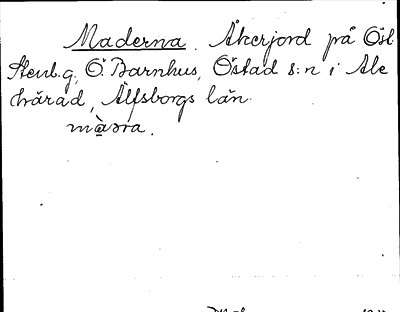 Maderna. Åkerjord på Öst
Stenl.g, Ö Barnhus, Östad s:n i Ale
härad, Älfsborgs län.